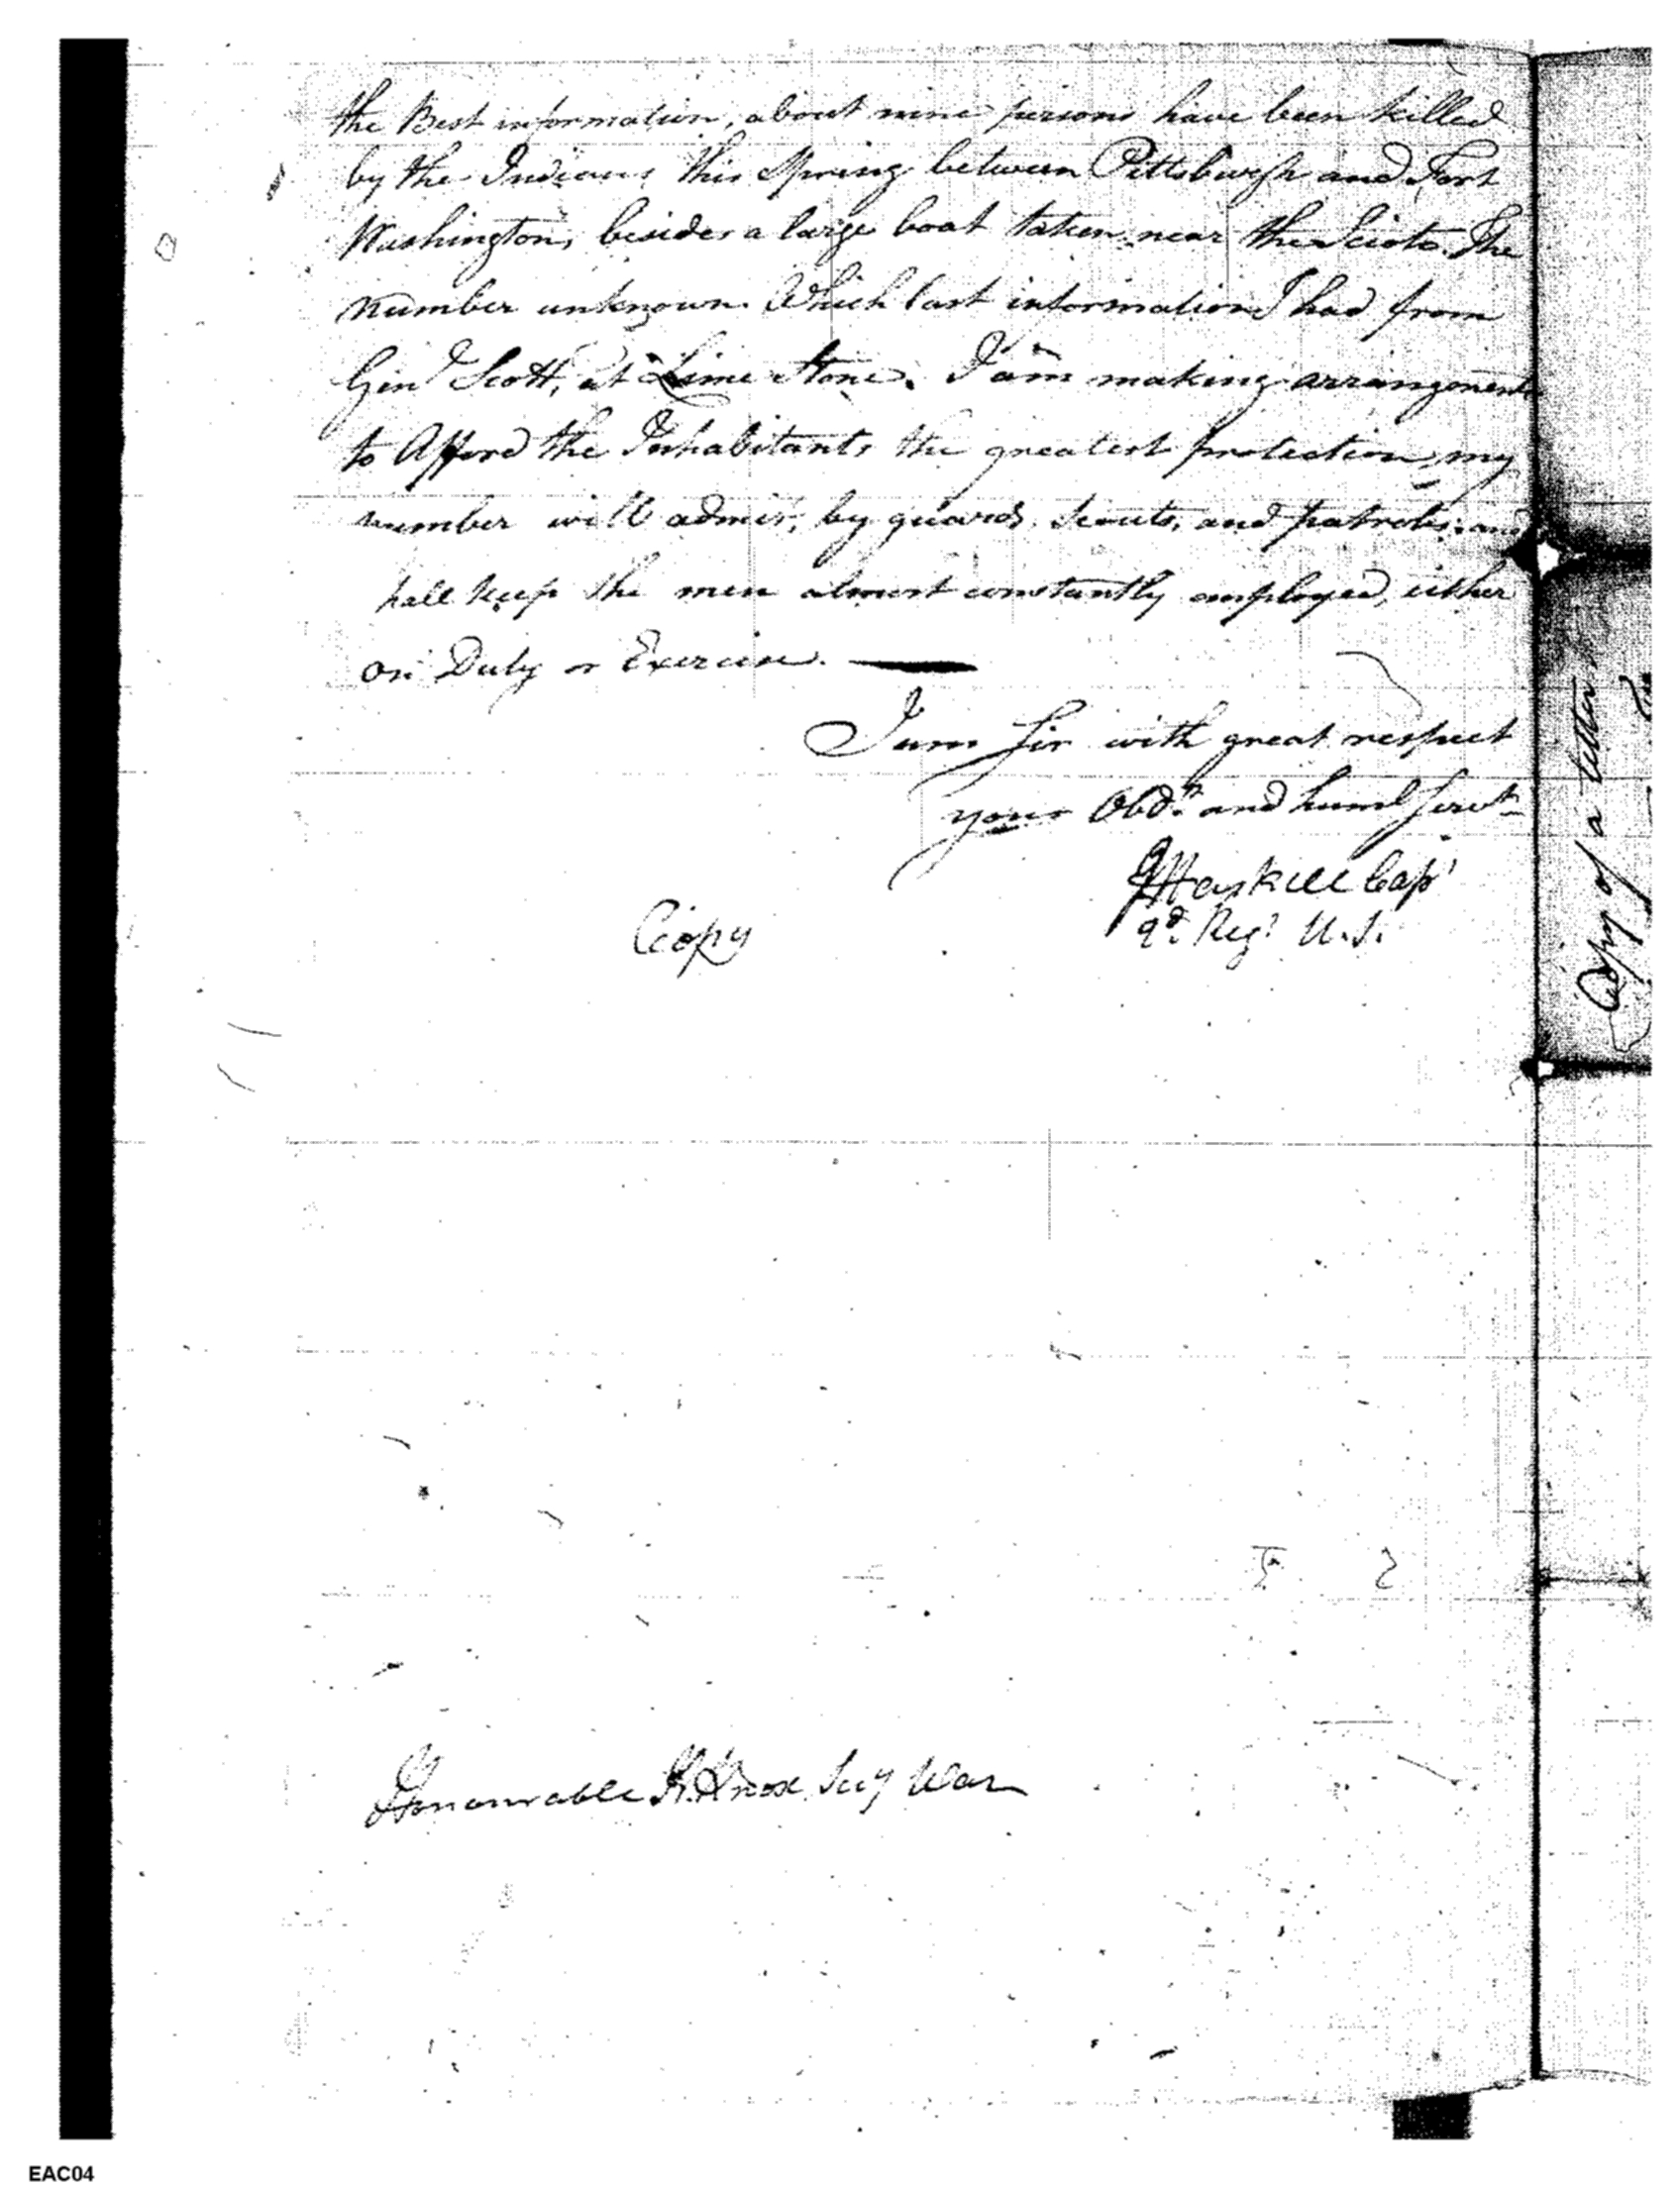 the Best information, about nine persons have been killed
by the Indians this Spring between Pittsburgh and Fort
Washington, besides a large boat taken near the Scioto. The
number unknown. Which last information I had from
Genl Scott, at Lime Stone. I am making arrangements
to Afford the Inhabitants the greatest protection, my
number will admit, by guards, scouts, and patroles; and
hall keep the men almost constantly employed, either
on Duty or Exercise.
I am Sir with great respect
your Obdt. and huml servt
J Haskell Capt
2d. Regt U.S.
Copy
Honourable H. Knox Secy War
Copy of a letter
EAC04